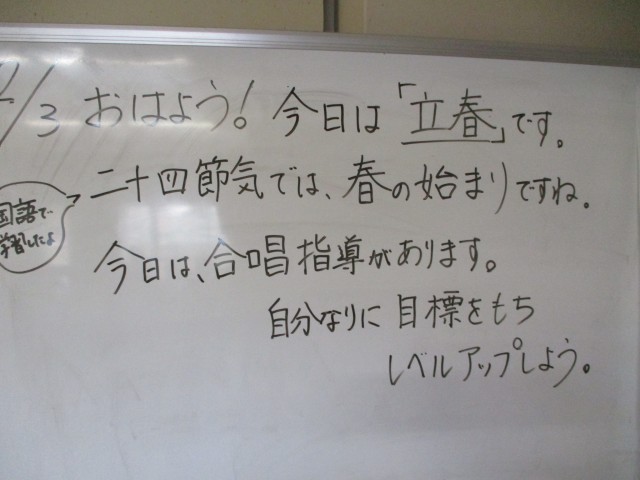 2/3 おはよう! 今日は「立春」です。
二十四節気では、春の始まりですね。
国語で
学習したよ
今日は、合唱指導があります。
自分なりに 目標をもち
レベルアップしよう。